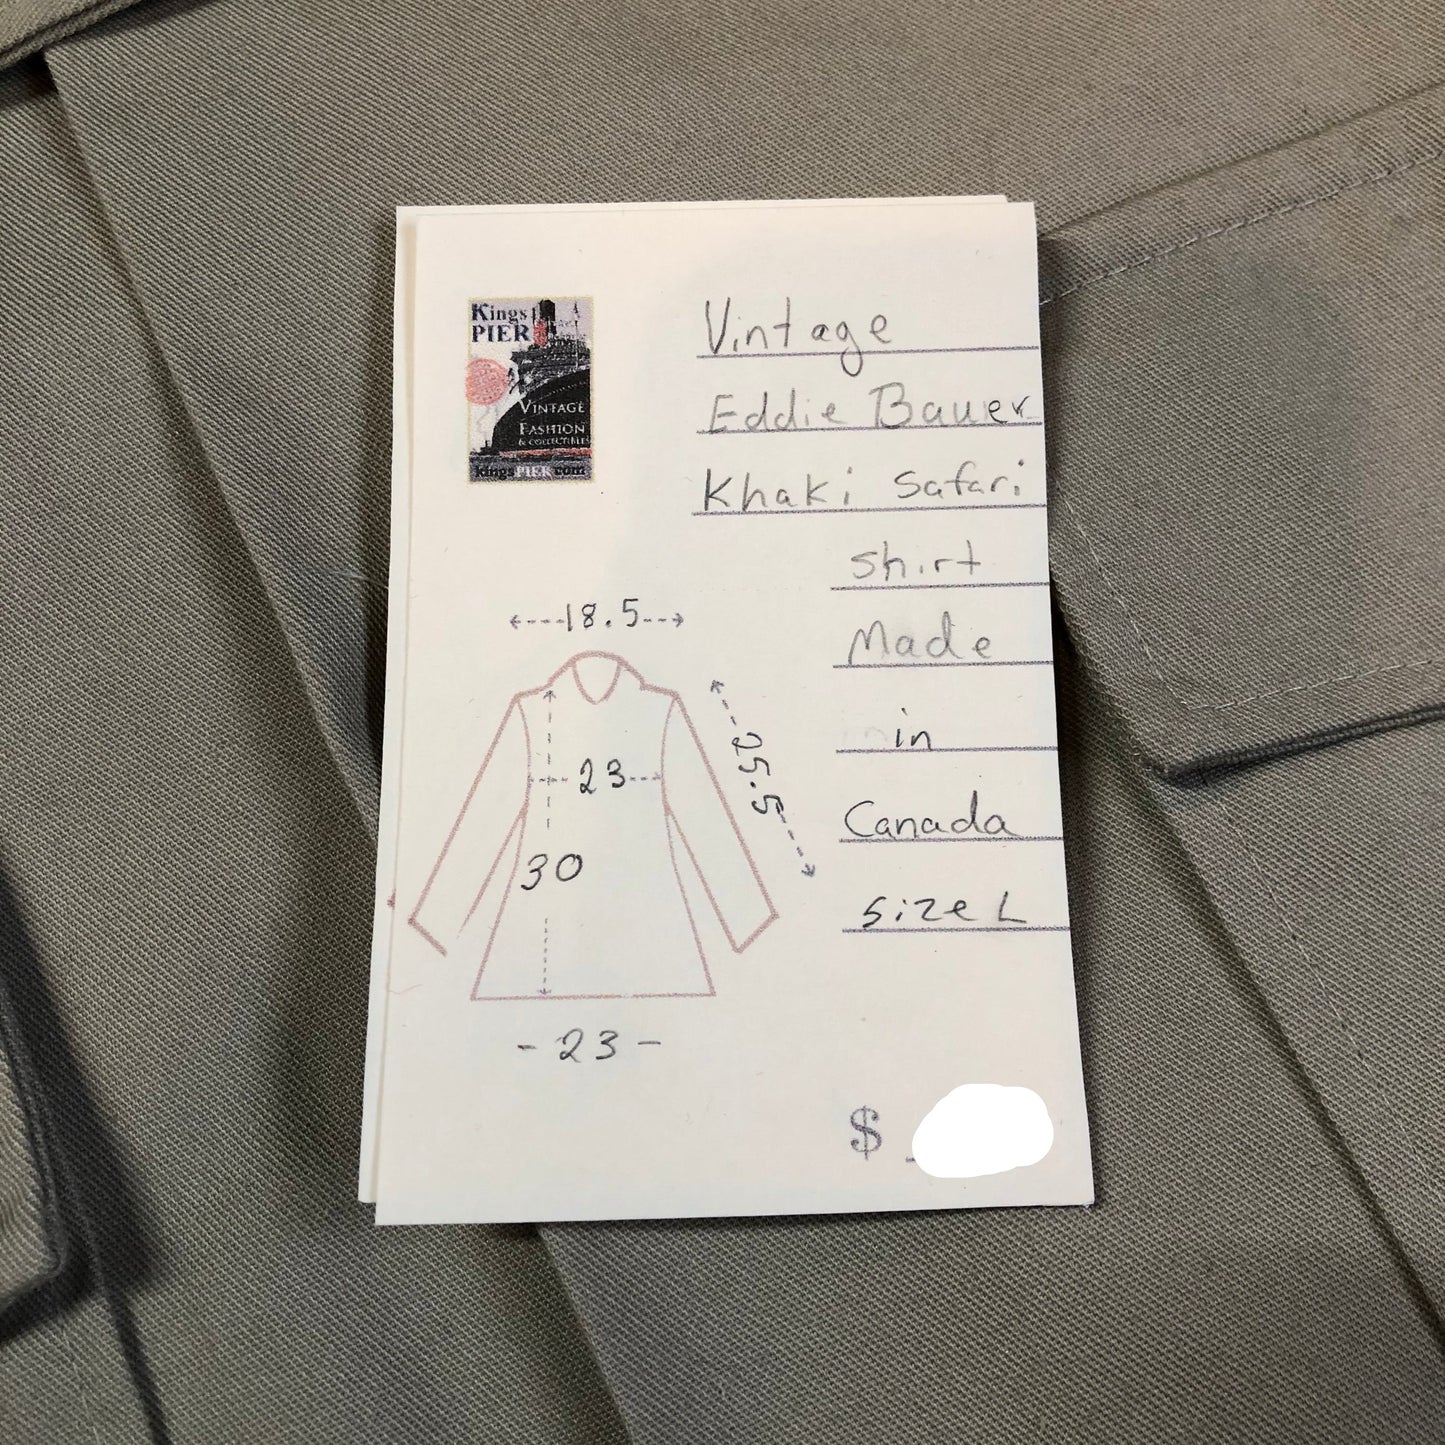 Kings
PIER
VINTAGE
FASHION
& COLLECTIBLES
kingsPIER.com
Vintage
Eddie Bauer
Khaki Safari
shirt
Made
in
Canada
size L
18.5
23
25.5
30
- 23 -
$